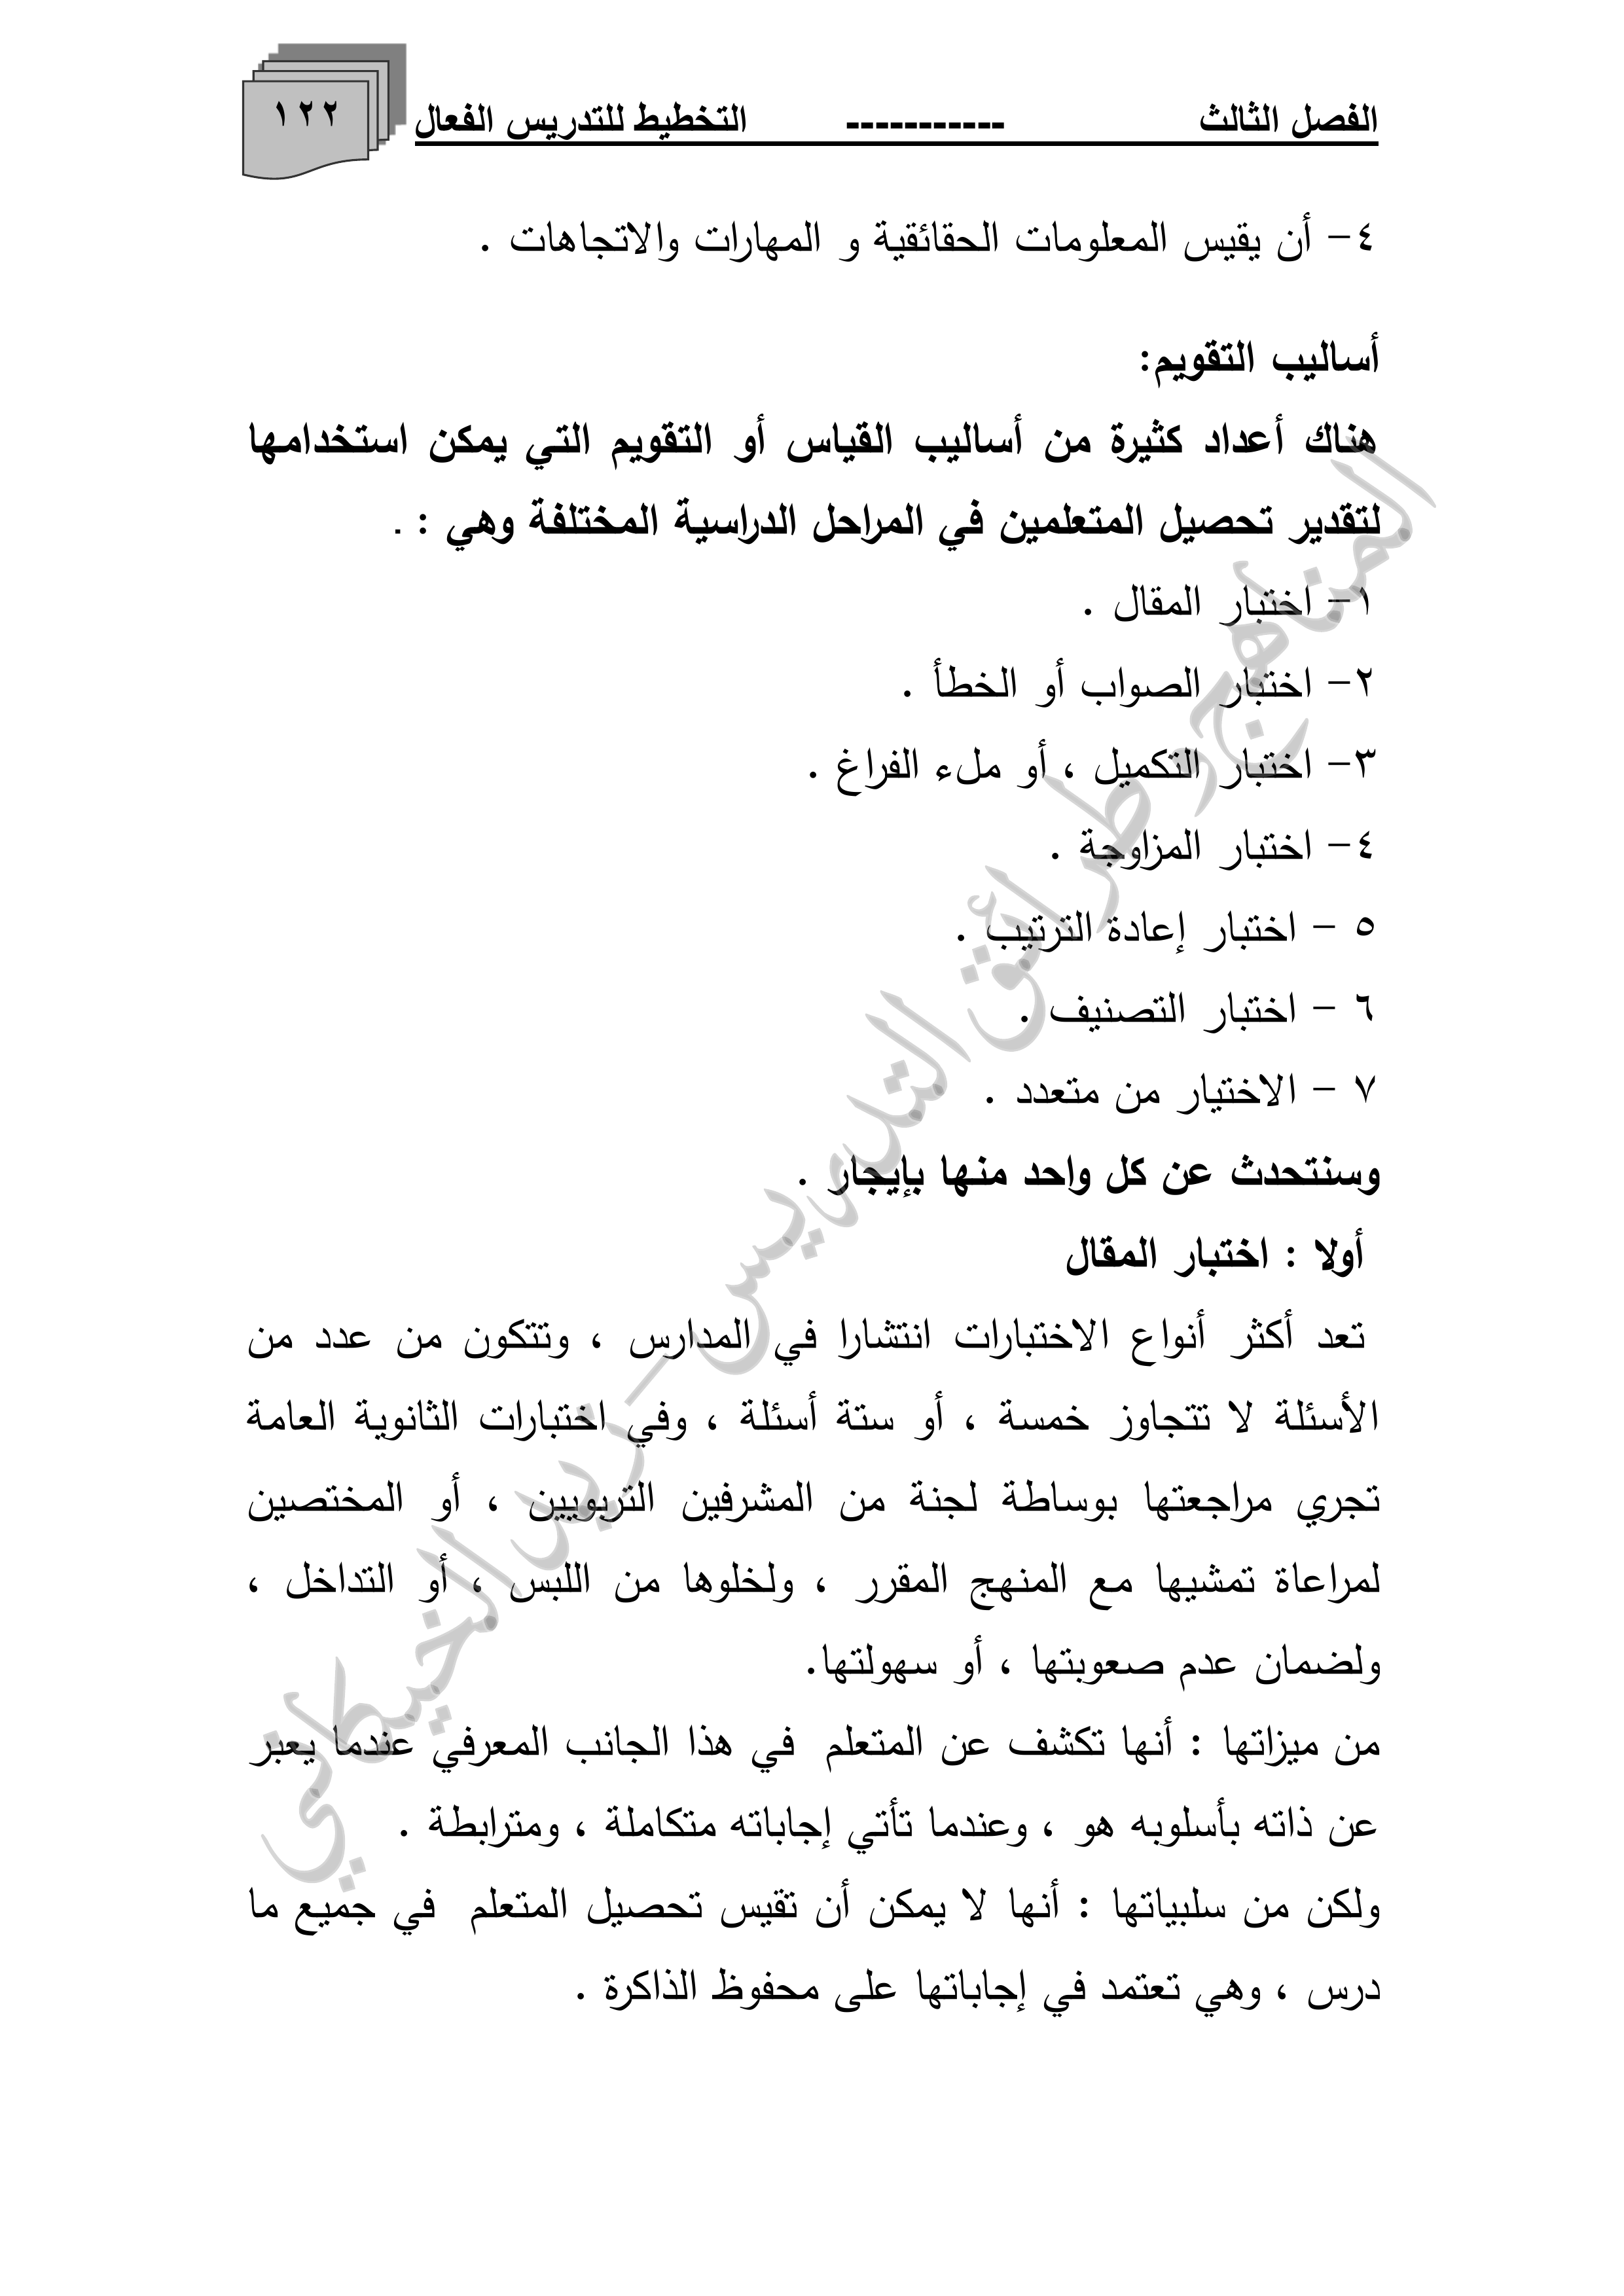 الفصل الثالث ----------- التخطيط للتدريس الفعال ١٢٢
٤- أن يقيس المعلومات الحقائقية و المهارات والاتجاهات .
أساليب التقويم:
هناك أعداد كثيرة من أساليب القياس أو التقويم التي يمكن استخدامها
لتقدير تحصيل المتعلمين في المراحل الدراسية المختلفة وهي : .
١- اختبار المقال .
٢- اختبار الصواب أو الخطأ .
٣- اختبار التكميل ، أو ملء الفراغ .
٤- اختبار المزاوجة .
٥ - اختبار إعادة الترتيب .
٦ - اختبار التصنيف .
٧ - الاختيار من متعدد .
وسنتحدث عن كل واحد منها بإيجار .
أولا : اختبار المقال
تعد أكثر أنواع الاختبارات انتشارا في المدارس ، وتتكون من عدد من
الأسئلة لا تتجاوز خمسة ، أو ستة أسئلة ، وفي اختبارات الثانوية العامة
تجري مراجعتها بوساطة لجنة من المشرفين التربويين ، أو المختصين
لمراعاة تمشيها مع المنهج المقرر ، ولخلوها من اللبس ، أو التداخل ،
ولضمان عدم صعوبتها ، أو سهولتها.
من ميزاتها : أنها تكشف عن المتعلم في هذا الجانب المعرفي عندما يعبر
عن ذاته بأسلوبه هو ، وعندما تأتي إجاباته متكاملة ، ومترابطة .
ولكن من سلبياتها : أنها لا يمكن أن تقيس تحصيل المتعلم في جميع ما
درس ، وهي تعتمد في إجاباتها على محفوظ الذاكرة .
المناهج وطرائق التدريس - زيد الخيكاني